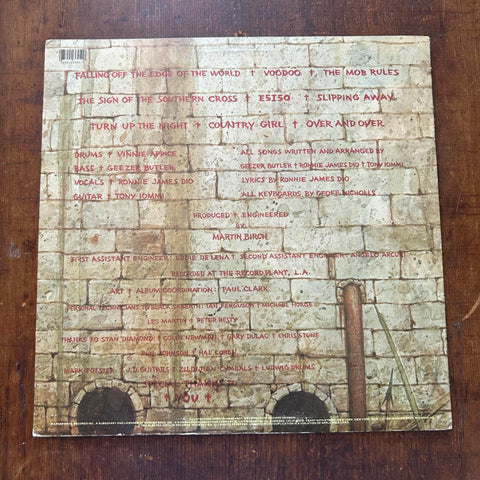 FALLING OFF THE EDGE OF THE WORLD † VOODOO † THE MOB RULES
THE SIGN OF THE SOUTHERN CROSS † E5150 † SLIPPING AWAY
TURN UP THE NIGHT † COUNTRY GIRL † OVER AND OVER
DRUMS † VINNIE APPICE
BASS † GEEZER BUTLER
VOCALS † RONNIE JAMES DIO
GUITAR † TONY IOMMI
ALL SONGS WRITTEN AND ARRANGED BY
GEEZER BUTLER † RONNIE JAMES DIO † TONY IOMMI
LYRICS BY RONNIE JAMES DIO
ALL KEYBOARDS BY GEOFF NICHOLLS
PRODUCED † ENGINEERED
BY
MARTIN BIRCH
FIRST ASSISTANT ENGINEER: EDDIE DELENA † SECOND ASSISTANT ENGINEER: ANGELO ARCURI
RECORDED AT THE RECORD PLANT, L.A.
ART † ALBUM COORDINATION: PAUL CLARK
PERSONAL TECHNICIANS TO BLACK SABBATH: IAN FERGUSON † MICHAEL HOWSE
LES MARTIN † PETER RESTY
THANKS TO STAN DIAMOND † COLIN NEWMAN † GARY DULAC † CHRIS STONE
JOHNSON † HAL COHEN
MARK FORSTER † J.D. GUITARS † ZILDJIAN CYMBALS † LUDWIG DRUMS
SPECIAL THANKS TO
† YOU †